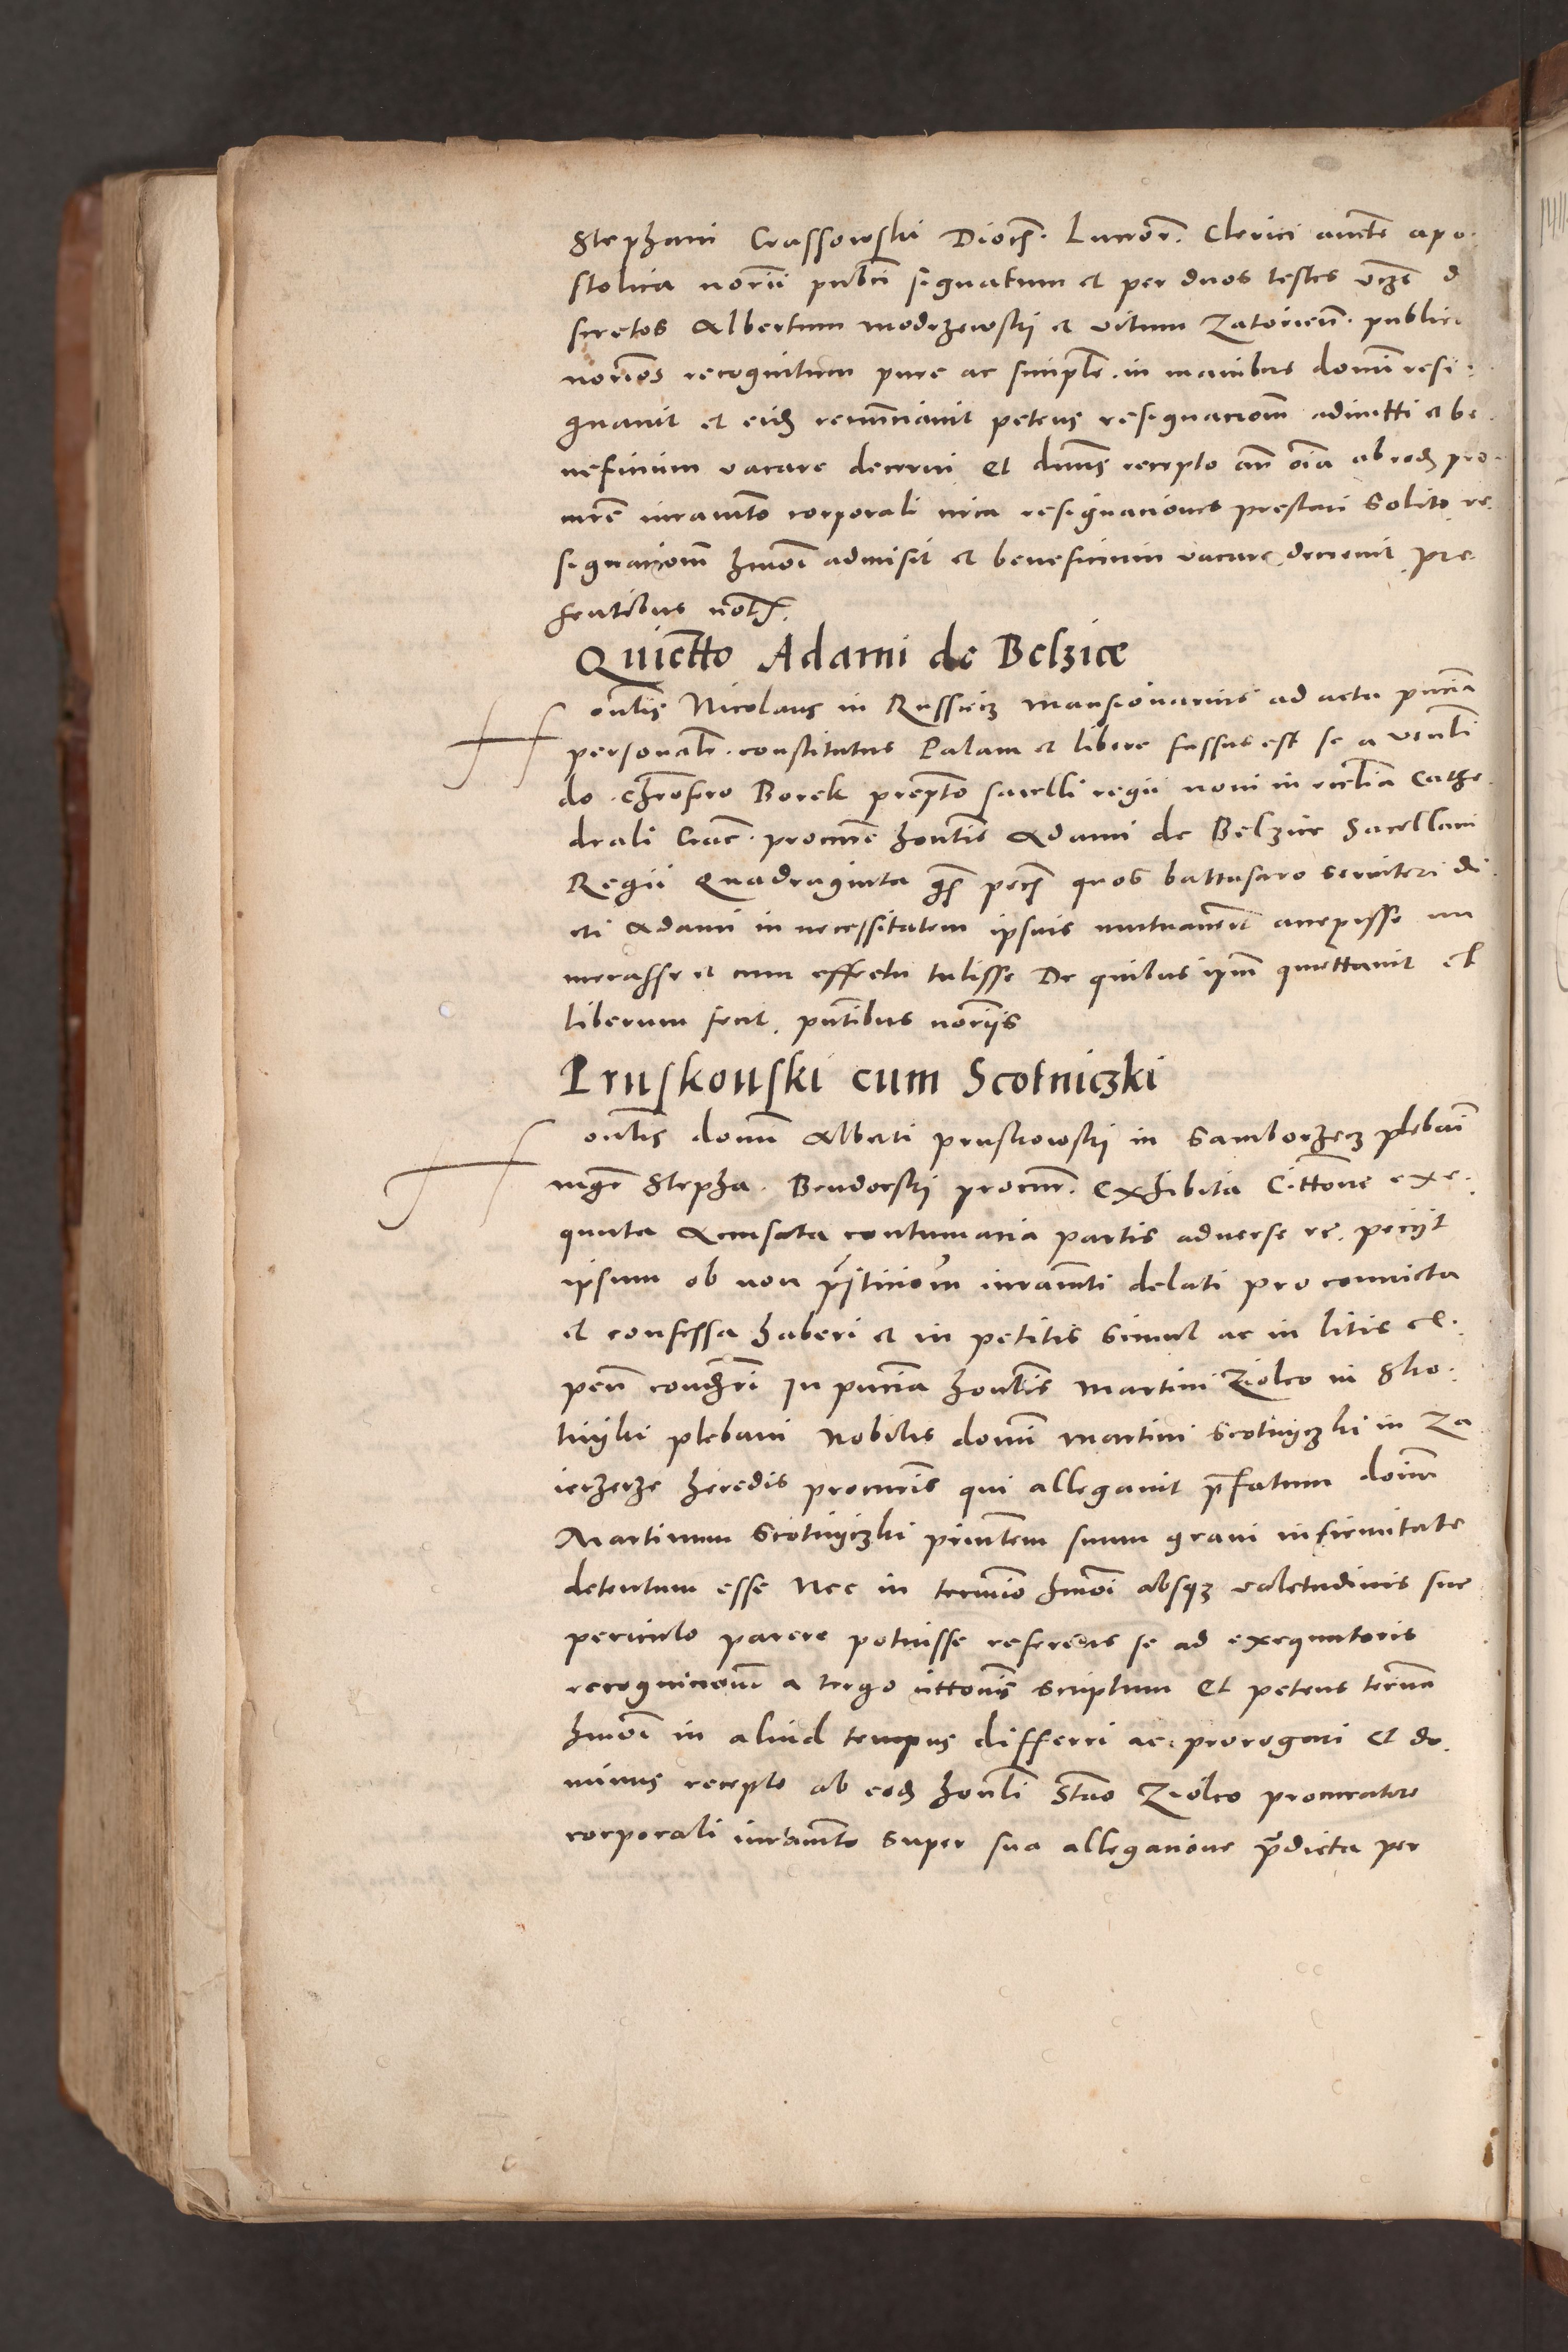 Stephani Crassowski Dioces. Luceor. Clerici aucte apo-
stolica norii publici signatum et per duos testes vcze di
scretos Albertum Modrzewski et Vitum Zatorien. publicos
norios recognitum pure ac simplr. in manibus domi resi-
gnavit et eidem renunciavit petens resignacionem admitti et be-
neficium vacare decerni Et dnus recepto an oia ab eodem pro-
cure iuramto corporali circa resignaciones prestari solito re-
signacionem hmoi admisit et beneficium vacare decrevit pre-
sentibus notariis.
Quietto Adami de Belzice
Honlis Nicolaus in Russiecz mansionarius ad acta pncia
personalr. constitutus Palam et libere fassus est se a venli
do. Chrofero Borek prepto sacelli regii novi in ecclia Cathe-
drali Crac. procure honlis Adami de Belzice Sacellani
Regii Quadraginta gros pecs quos baltasaro servitori di-
cti Adami in necessitatem ipsius mutuaverit accepisse nu
merasse et cum effectu tulisse De quibus ipm quittavit et
liberum fecit. pntibus noriis
Pruskouski cum Scotniczki
Honlis domi Alberti pruskowski in Samborzecz plebani
mgr Stepha. Bendorski procur. Exhibita Cittone exe-
quuta Accusata contumacia partis adverse re. peciit
ipsum ob non prestitiom iuramti delati pro convicta
et confessa haberi et in petitis simul ac in litis ex-
pen condemri In pncia honlis Martini Ziolco in Sko-
tniki plebani Nobilis domi Martini Scotniczki in Za
ierzerze heredis procuris qui allegavit prefatum doim
Martinum Scotniczki printem suum gravi infirmitate
detentum esse Nec in termio hmoi absque valetudinis sue
periculo parere potuisse referens se ad exequutoris
recognicionem a tergo cittonis scriptum Et petens termin
hmoi in aliud tempus differri ac prorogari Et do-
minus recepto ab eodem honli Stao Ziolco procuratore
corporali iuramto super sua allegacione predicta per